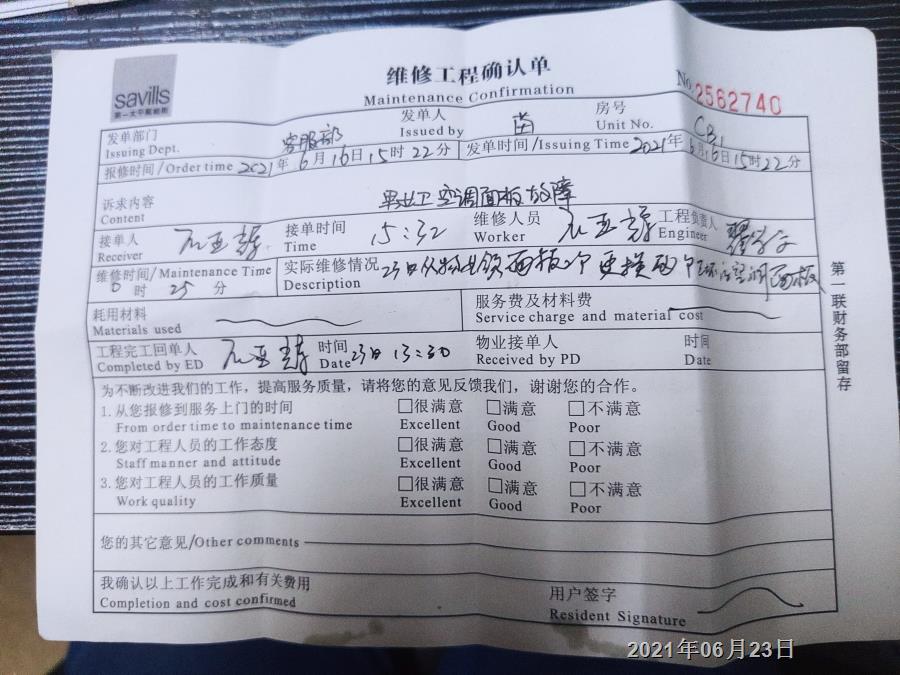 savills
第一太平戴维斯
维修工程确认单
Maintenance Confirmation
No 2562740
发单部门 客服部 发单人 苗 房号 CB1
Issuing Dept. Issued by Unit No.
报修时间/Order time 2021年6月16日15时22分 发单时间/Issuing Time 2021年6月16日15时22分
诉求内容 空调面板故障
Content
接单人 接单时间 15:32 维修人员 工程负责人
Receiver Time Worker Engineer
维修时间/Maintenance Time 实际维修情况 23日从物业领面板2个 更换
0时25分 Description
耗用材料 服务费及材料费
Materials used Service charge and material cost
工程完工回单人 时间 23日 13:30 物业接单人 时间
Completed by ED Date Received by PD Date
为不断改进我们的工作，提高服务质量，请将您的意见反馈我们，谢谢您的合作。
1.从您报修到服务上门的时间 □很满意 □满意 □不满意
From order time to maintenance time Excellent Good Poor
2.您对工程人员的工作态度 □很满意 □满意 □不满意
Staff manner and attitude Excellent Good Poor
3.您对工程人员的工作质量 □很满意 □满意 □不满意
Work quality Excellent Good Poor
您的其它意见/Other comments
我确认以上工作完成和有关费用 用户签字
Completion and cost confirmed Resident Signature
第一联财务部留存
2021年06月23日